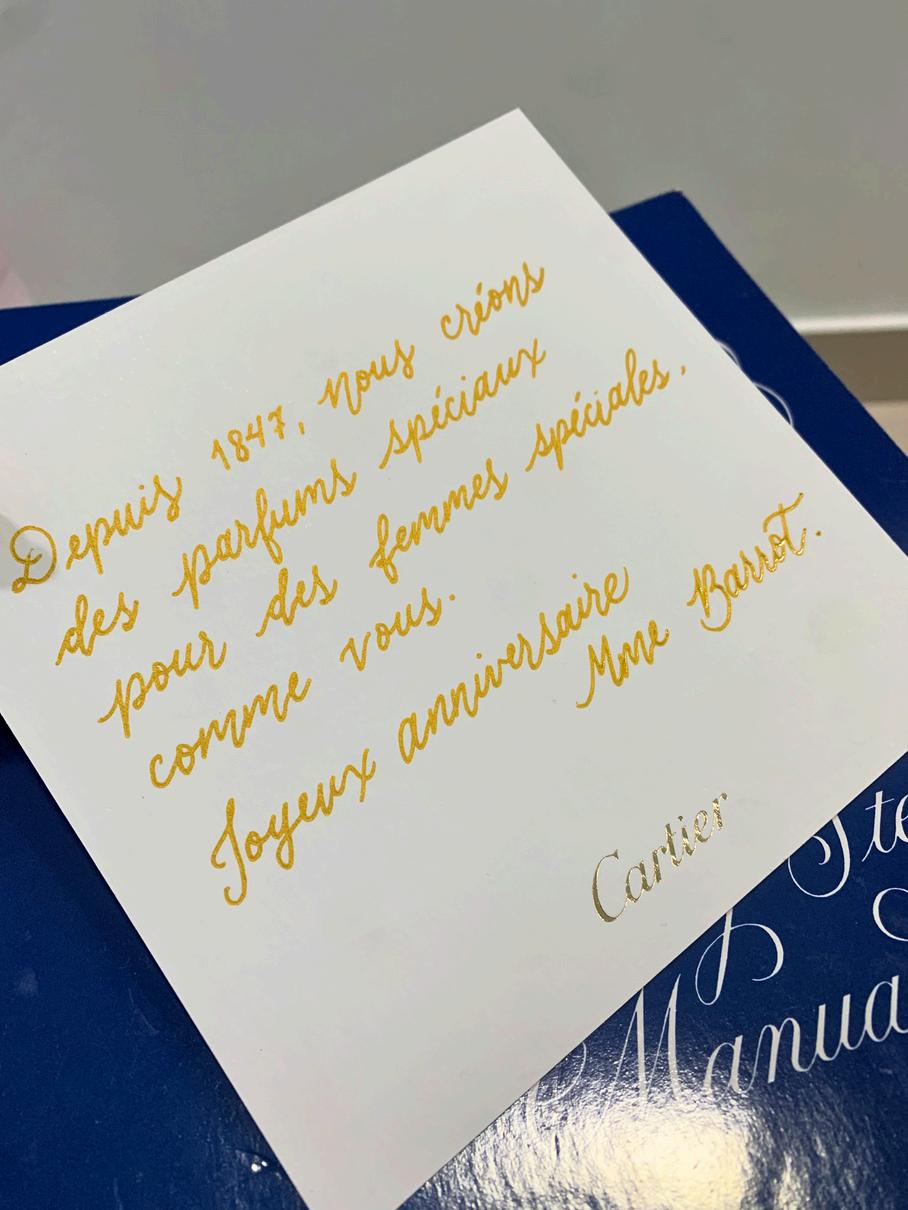 Depuis 1847, nous créons
des parfums spéciaux
pour des femmes spéciales,
comme vous.
Joyeux anniversaire
Mme Barrot.
Cartier
Manua